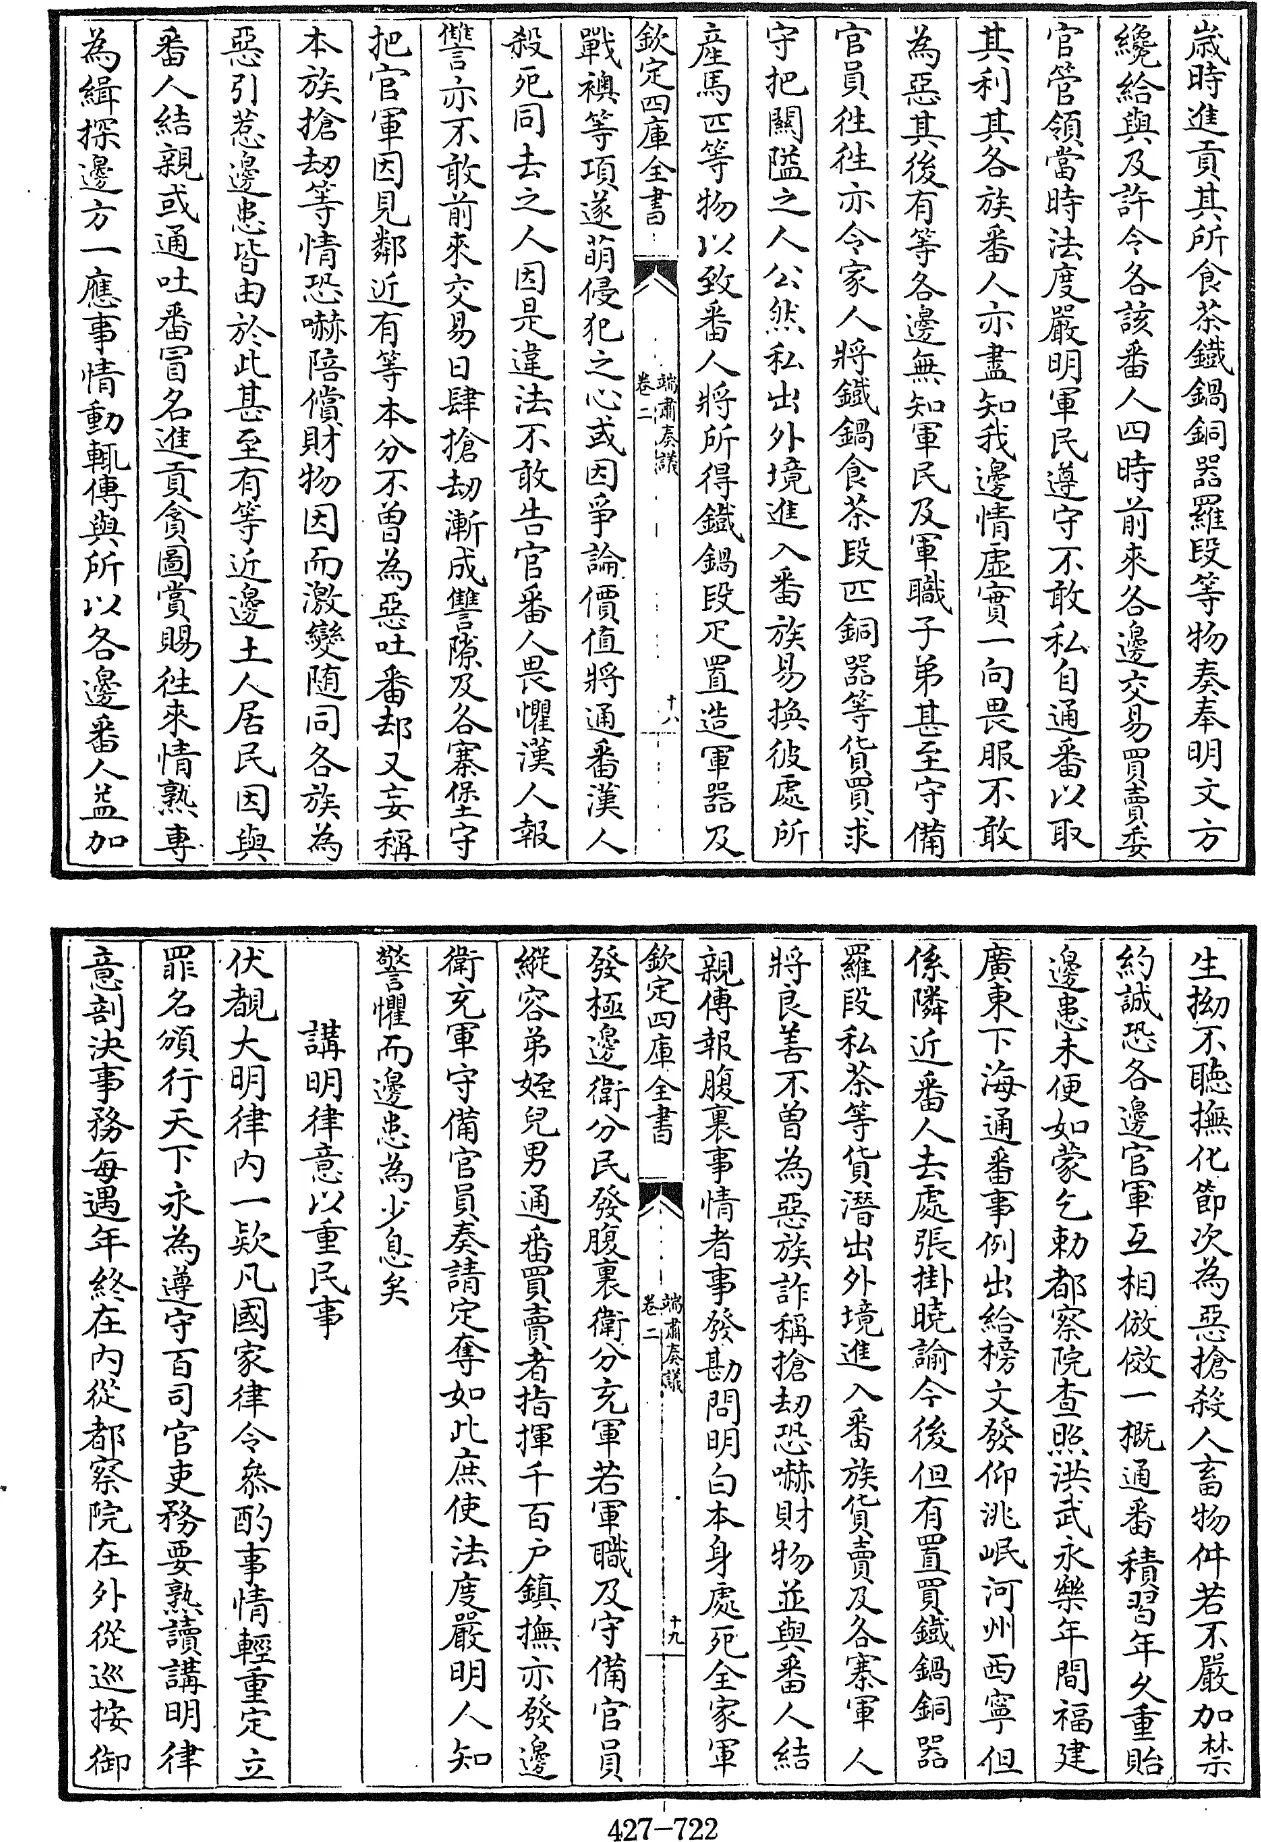 歲時進貢其所食茶鐵鍋銅器羅段等物奏奉明文方
纔給與及許令各該番人四時前來各邊交易買賣委
官管領當時法度嚴明軍民遵守不敢私自通番以取
其利其各族番人亦盡知我邊情虛實一向畏服不敢
為惡其後有等各邊無知軍民及軍職子弟甚至守備
官員徃徃亦令家人將鐵鍋食茶段匹銅器等貨買求
守把關隘之人公然私出外境進入番族易換彼處所
產馬匹等物以致番人將所得鐵鍋段疋置造軍器及
欽定四庫全書
端肅奏議
卷二
十八
戰襖等項遂萌侵犯之心或因爭論價值將通番漢人
殺死同去之人因是違法不敢告官番人畏懼漢人報
讐亦不敢前來交易日肆搶刼漸成讐隙及各寨堡守
把官軍因見鄰近有等本分不曾為惡吐番却又妄稱
本族搶刼等情恐嚇陪償財物因而激變隨同各族為
惡引惹邊患皆由於此甚至有等近邊土人居民因與
番人結親或通吐番冒名進貢貪圖賞賜徃來情熟專
為緝探邊方一應事情動輒傳與所以各邊番人益加
生拗不聽撫化節次為惡搶殺人畜物件若不嚴加禁
約誠恐各邊官軍互相倣傚一概通番積習年久重貽
邊患未便如蒙乞勅都察院查照洪武永樂年間福建
廣東下海通番事例出給榜文發仰洮岷河州西寧但
係隣近番人去處張掛曉諭今後但有置買鐵鍋銅器
羅段私茶等貨潛出外境進入番族貨賣及各寨軍人
將良善不曾為惡族詐稱搶刼恐嚇財物並與番人結
親傳報腹裏事情者事發勘問明白本身處死全家軍
欽定四庫全書
端肅奏議
卷二
十九
發極邊衛分民發腹裏衛分充軍若軍職及守備官員
縱容弟姪兒男通番買賣者指揮千百户鎮撫亦發邊
衛充軍守備官員奏請定奪如此庶使法度嚴明人知
警懼而邊患為少息矣
講明律意以重民事
伏覩大明律内一欵凡國家律令叅酌事情輕重定立
罪名頒行天下永為遵守百司官吏務要熟讀講明律
意剖決事務每遇年終在内從都察院在外從巡按御
427-722